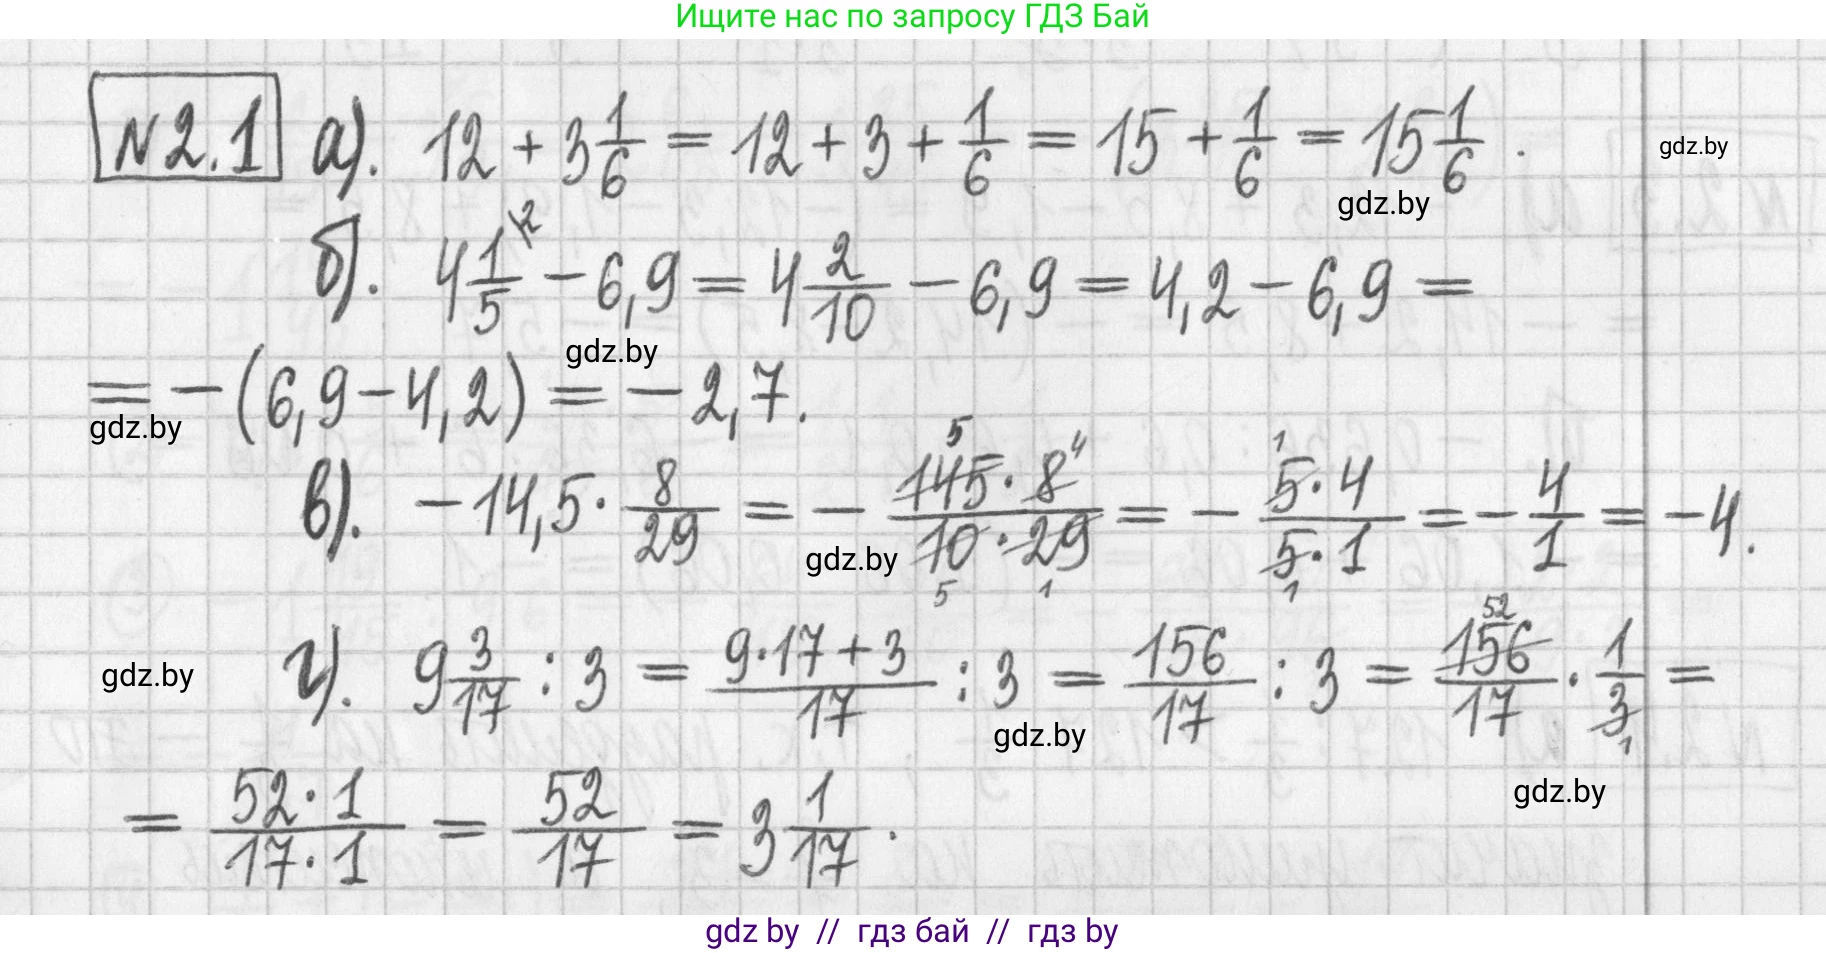 Ищите нас по запросу ГДЗ Бай
№2.1 а). 12 + 3 1/6 = 12 + 3 + 1/6 = 15 + 1/6 = 15 1/6 .
gdz.by
gdz.by
б). 4 1/5 \2 − 6,9 = 4 2/10 − 6,9 = 4,2 − 6,9 =
gdz.by
= −(6,9 − 4,2) = −2,7.
gdz.by
в). −14,5 · 8/29 = − (145 · 8)/(10 · 29) = − (5 · 4)/(5 · 1) = − 4/1 = −4.
5 4 1
gdz.by
5 1 1
г). 9 3/17 : 3 = (9·17+3)/17 : 3 = 156/17 : 3 = 156/17 · 1/3 =
52
1
gdz.by
gdz.by
gdz.by
= (52·1)/(17·1) = 52/17 = 3 1/17 .
gdz by // гдз бай // гдз by